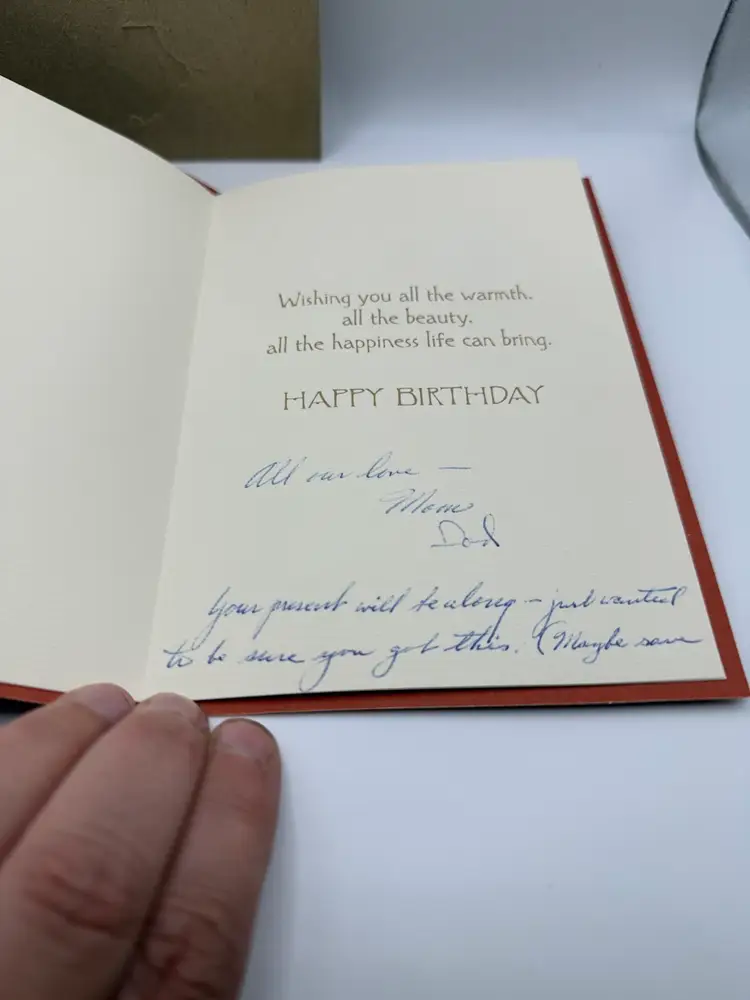 Wishing you all the warmth,
all the beauty,
all the happiness life can bring.
HAPPY BIRTHDAY
All our love —
Mom
Dad
Your present will be along — just wanted
to be sure you got this. (Maybe save